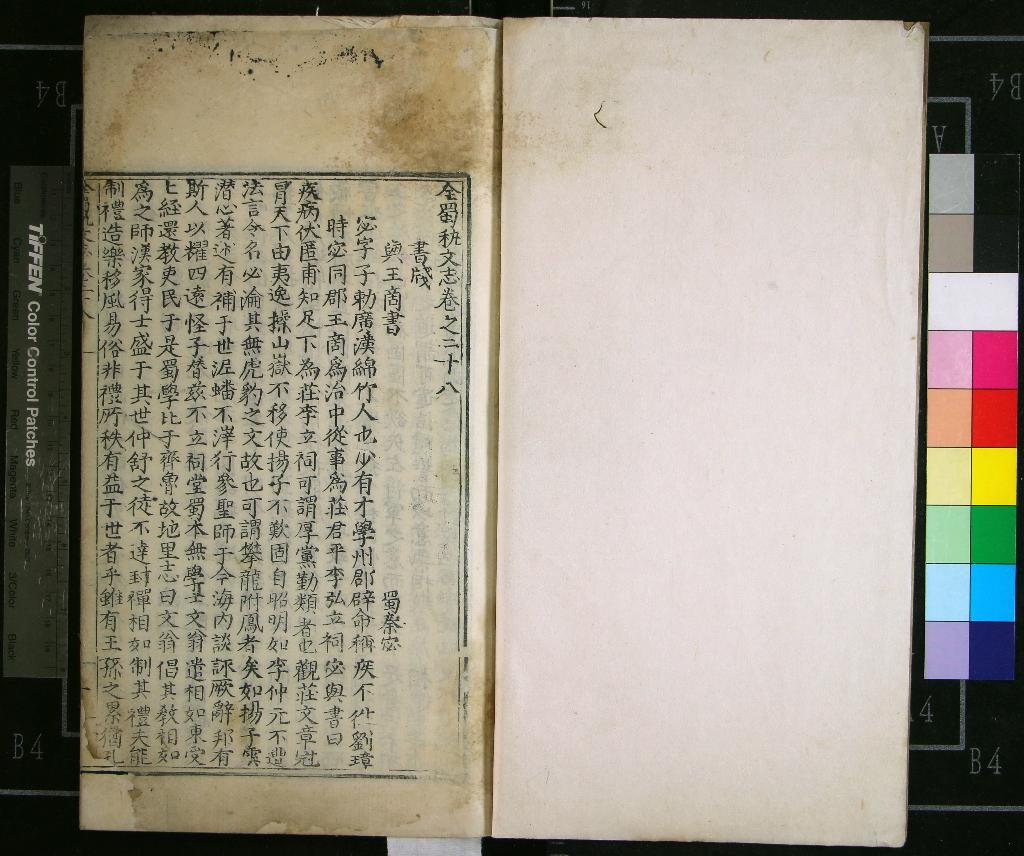 全蜀秇文志卷之二十八
書牋
與王商書 蜀秦宓
宓字子勅廣漢綿竹人也少有才學州郡辟命稱疾不仕劉璋
時宓同郡王商爲治中從事爲莊君平李弘立祠宓與書曰
疾病伏匿甫知足下爲莊李立祠可謂厚黨勤類者也觀莊文章冠
冒天下由夷逸操山嶽不移使揚子不歎固自昭明如李仲元不遭
法言令名必淪其無虎豹之文故也可謂攀龍附鳳者矣如揚子雲
潜心著述有補于世泥蟠不滓行參聖師于今海内談諑厥辭邦有
斯人以耀四遠怪子替兹不立祠堂蜀本無學士文翁遣相如東受
七經還教吏民于是蜀學比于齊魯故地里志曰文翁倡其敎相如
爲之師漢家得士盛于其世仲舒之徒不達封禪相如制其禮夫能
制禮造樂移風易俗非禮所秩有益于世者乎雖有王孫之累猶孔
TIFFEN Color Control Patches
Blue Cyan Green Yellow Red Magenta White 3/Color Black
B4
B4
B4
B4
A4
A